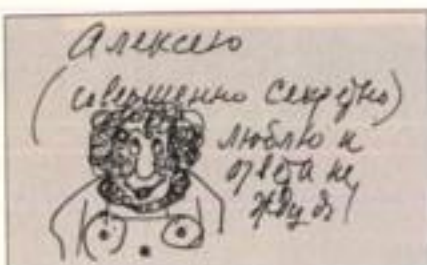 Алексею
(совершенно секретно)
люблю и
ответа не
жду